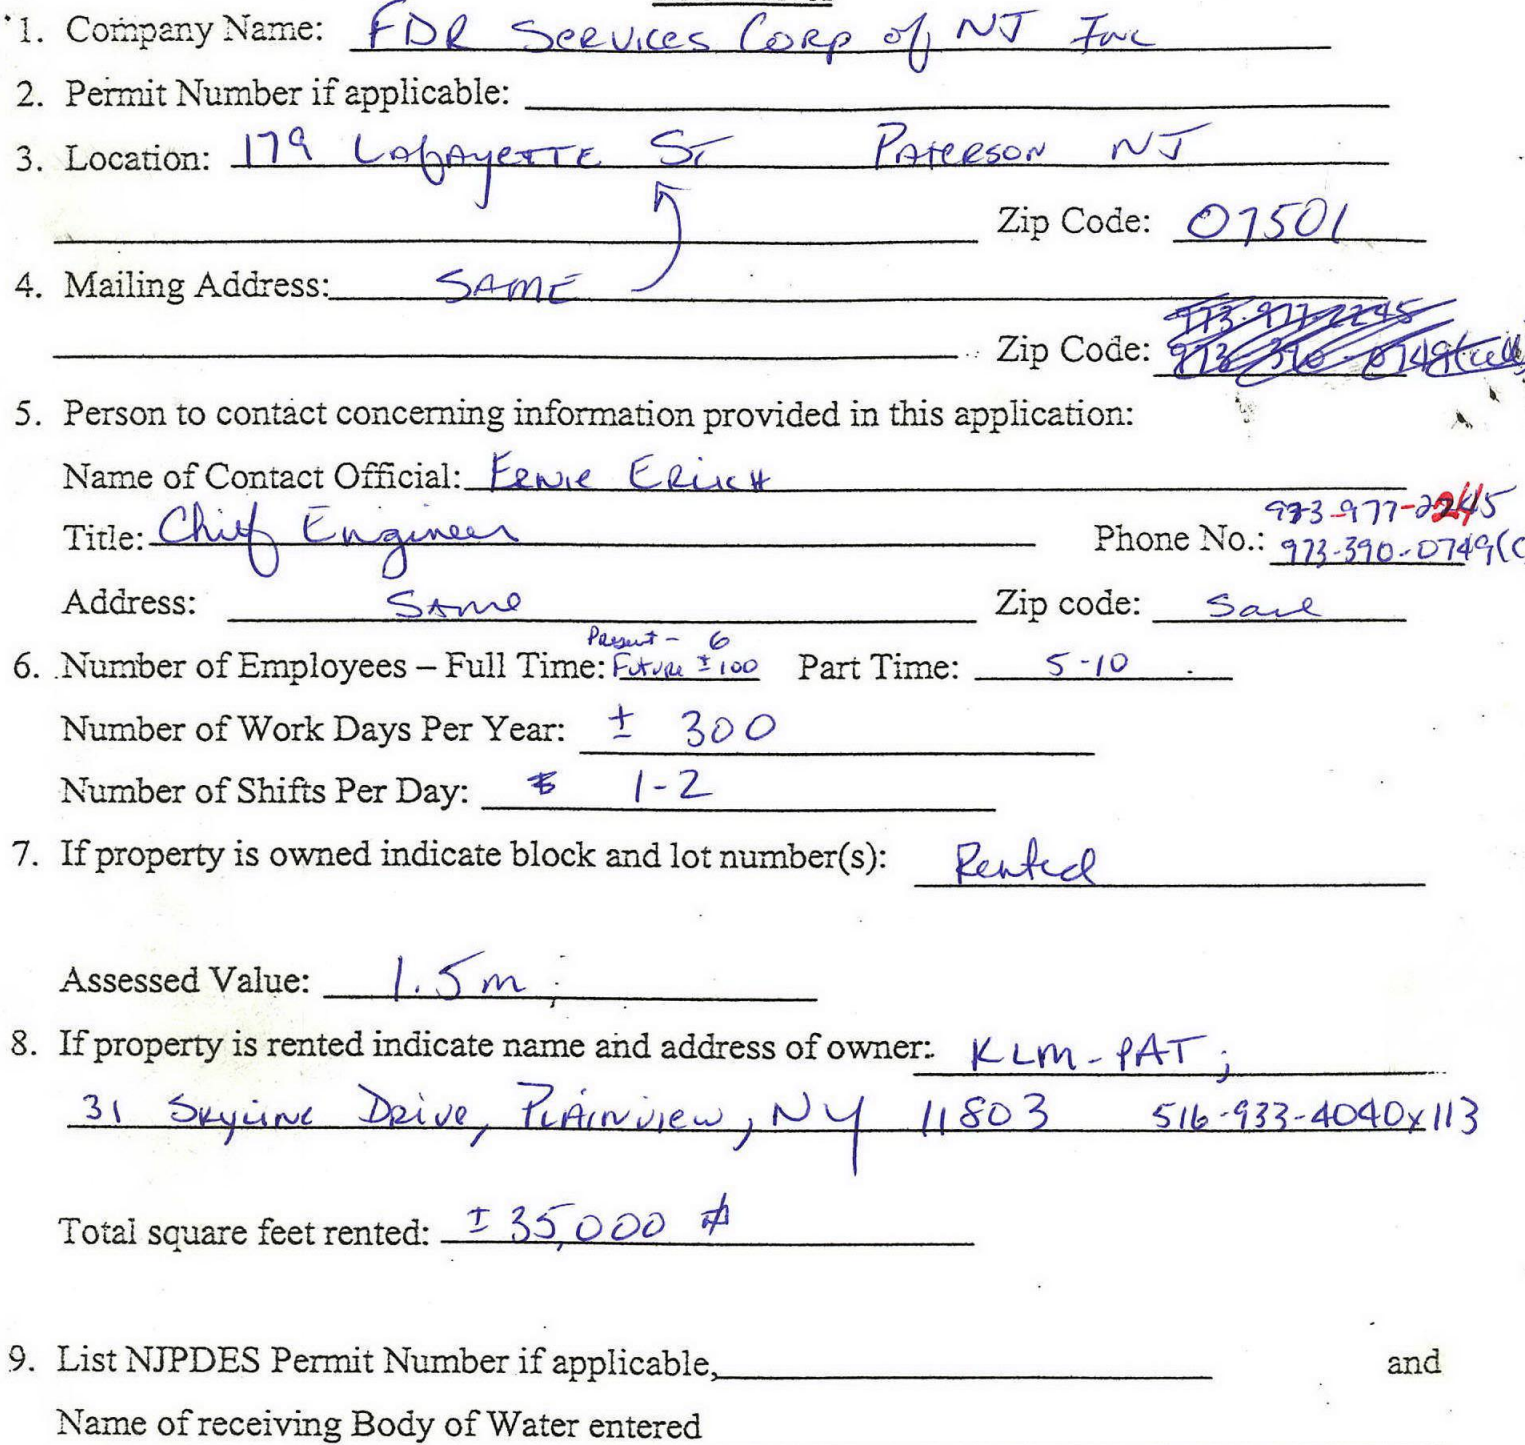 1. Company Name: FDR Services Corp of NJ Inc
2. Permit Number if applicable:
3. Location: 179 Lafayette St Paterson NJ
Zip Code: 07501
4. Mailing Address: SAME
973-977-2245
Zip Code: 973-390-0749 (cell)
5. Person to contact concerning information provided in this application:
Name of Contact Official: Ernie
973-977-2245
Title: Chief Engineer Phone No.: 973-390-0749 (C
Address: Same Zip code: Same
Present - 6
6. Number of Employees – Full Time: Future ± 100 Part Time: 5-10
Number of Work Days Per Year: ± 300
Number of Shifts Per Day: 1-2
7. If property is owned indicate block and lot number(s): Rented
Assessed Value: 1.5m
8. If property is rented indicate name and address of owner: KLM-PAT;
31 Skyline Drive, Plainview, NY 11803 516-933-4040x113
Total square feet rented: ± 35,000
9. List NJPDES Permit Number if applicable, and
Name of receiving Body of Water entered